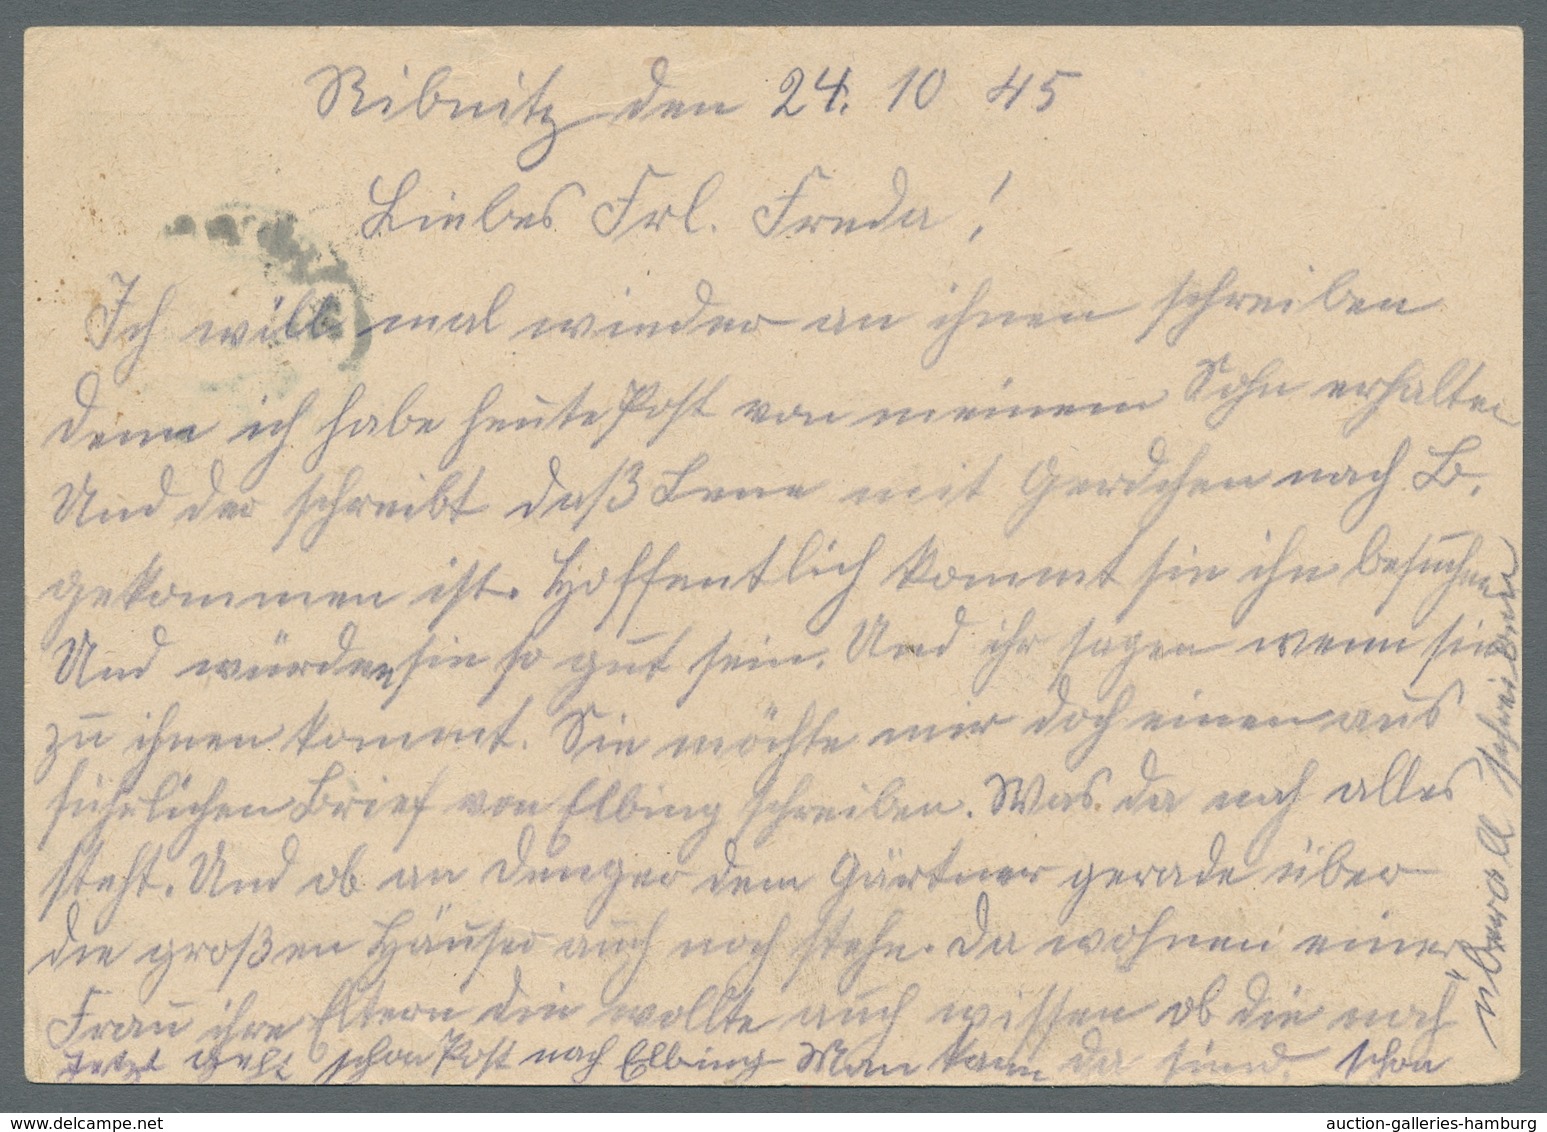 Ribnitz den 24. 10 45
Liebes Frl. Freda!
Ich will mal wieder an ihnen schreiben
denn ich habe heute Post von meinem Sohn erhalten
Und der schreibt daß Lene mit Gerdchen nach B.
gekommen ist. Hoffentlich kommt sie ihn besuchen
Und würden sie so gut sein. Und ihr sagen wenn sie
zu ihnen kommt. Sie möchte mir doch einen aus
führlichen Brief von Elbing schreiben. Was da noch alles
steht. Und ob an dem Gärtner gerade über
die großen Häuser auch noch stehn. Da wohnen einer
Frau ihre Eltern die wollte auch wissen ob die noch
Jetzt geht schon Post nach Elbing Man kann da schon
überall schreiben
delcampe.net
auction-galleries-hamburg